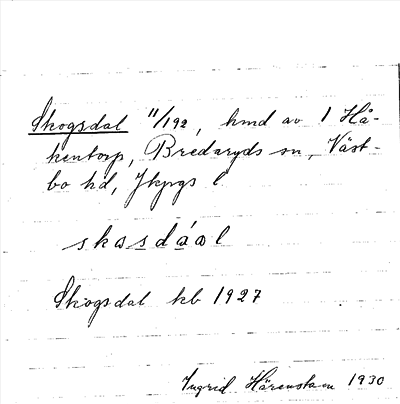 Skogsdal 11/192, hmd av 1 Hå-
kentorp, Bredaryds sn, Väst-
bo hd, Jkpgs l
skɷsdáɷl
Skogsdal kb 1927
Ingrid Härenstam 1930